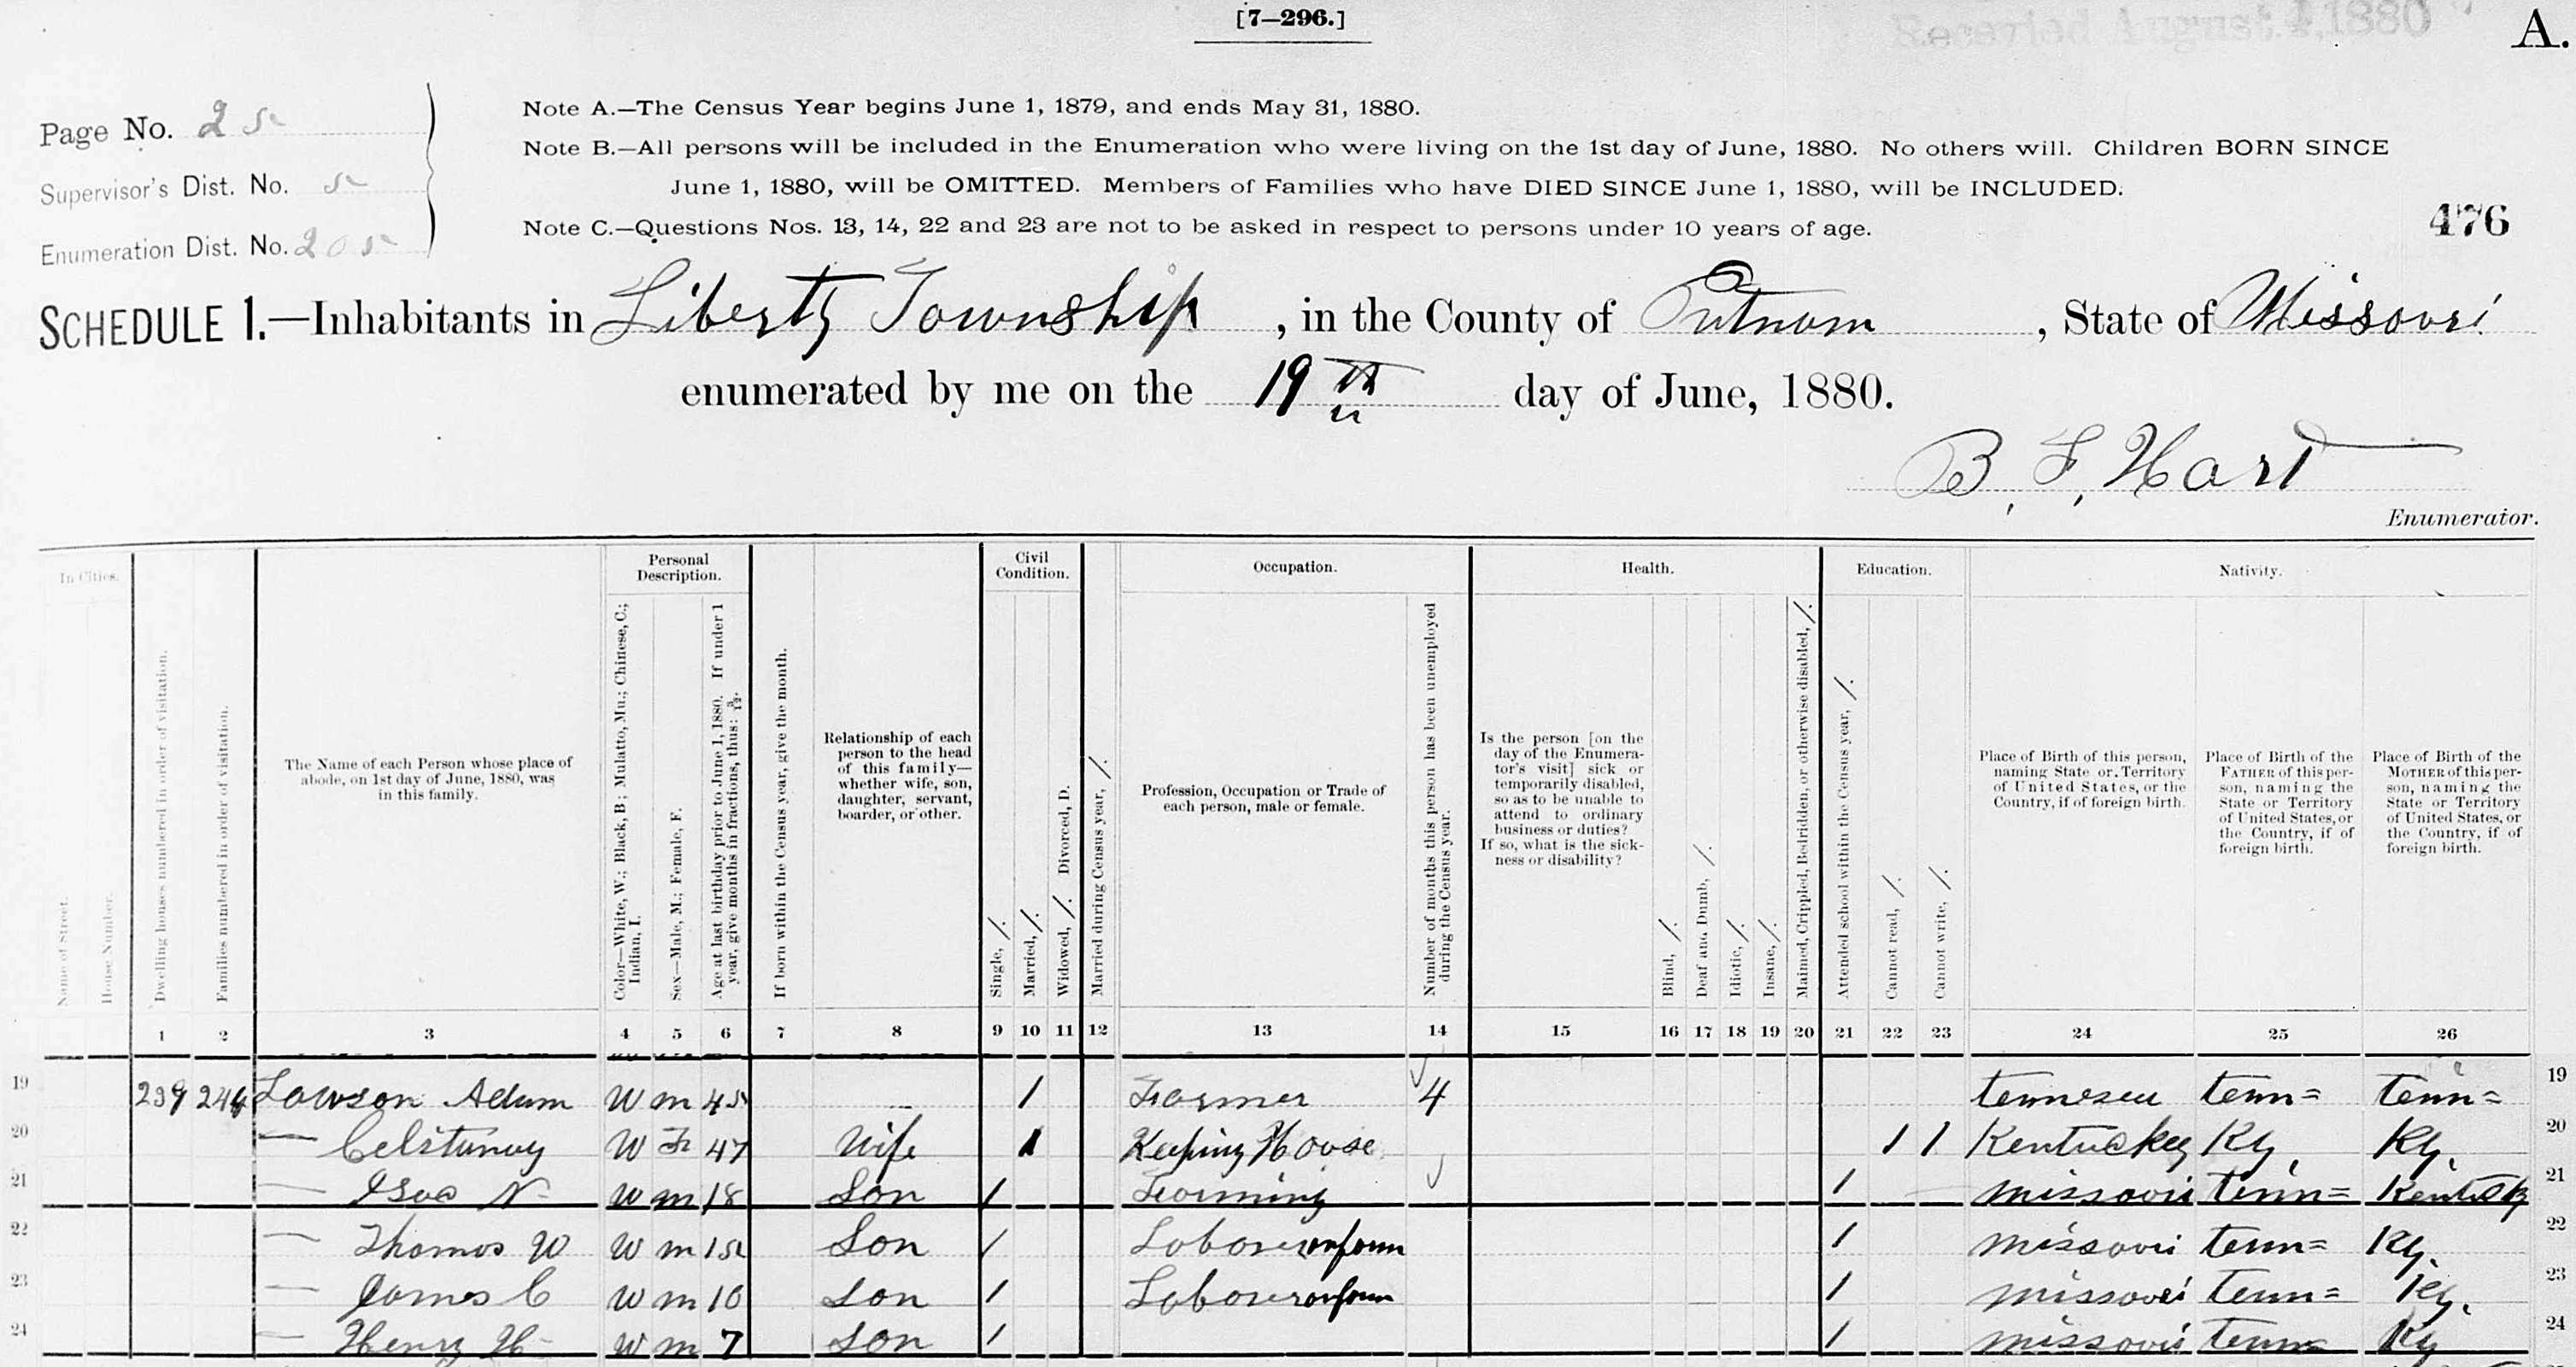 [7—296.]
Received August 1, 1880
A.
Page No. 25
Supervisor's Dist. No. 5
Enumeration Dist. No. 205
Note A.—The Census Year begins June 1, 1879, and ends May 31, 1880.
Note B.—All persons will be included in the Enumeration who were living on the 1st day of June, 1880. No others will. Children BORN SINCE
June 1, 1880, will be OMITTED. Members of Families who have DIED SINCE June 1, 1880, will be INCLUDED.
Note C.—Questions Nos. 13, 14, 22 and 23 are not to be asked in respect to persons under 10 years of age.
476
SCHEDULE 1.—Inhabitants in Liberty Township, in the County of Putnam, State of Missouri
enumerated by me on the 19th day of June, 1880.
B. F. Hart
Enumerator.
In Cities.
Name of Street.
House Number.
Dwelling houses numbered in order of visitation.
Families numbered in order of visitation.
The Name of each Person whose place of
abode, on 1st day of June, 1880, was
in this family.
Personal
Description.
Color—White, W.; Black, B; Mulatto, Mu.; Chinese, C.;
Indian, I.
Sex—Male, M.; Female, F.
Age at last birthday prior to June 1, 1880. If under 1
year, give months in fractions, thus: 3/12.
If born within the Census year, give the month.
Relationship of each
person to the head
of this family—
whether wife, son,
daughter, servant,
boarder, or other.
Civil
Condition.
Single, /.
Married, /.
Widowed, /. Divorced, D.
Married during Census year, /.
Occupation.
Profession, Occupation or Trade of
each person, male or female.
Number of months this person has been unemployed
during the Census year.
Health.
Is the person [on the
day of the Enumera-
tor's visit] sick or
temporarily disabled,
so as to be unable to
attend to ordinary
business or duties?
If so, what is the sick-
ness or disability?
Blind, /.
Deaf and Dumb, /.
Idiotic, /.
Insane, /.
Maimed, Crippled, Bedridden, or otherwise disabled, /.
Education.
Attended school within the Census year, /.
Cannot read, /.
Cannot write, /.
Nativity.
Place of Birth of this person,
naming State or Territory
of United States, or the
Country, if of foreign birth.
Place of Birth of the
FATHER of this per-
son, naming the
State or Territory
of United States, or
the Country, if of
foreign birth.
Place of Birth of the
MOTHER of this per-
son, naming the
State or Territory
of United States, or
the Country, if of
foreign birth.
1 2 3 4 5 6 7 8 9 10 11 12 13 14 15 16 17 18 19 20 21 22 23 24 25 26
19 239 244 Lawson Adam W m 45 1 Farmer 4 tennesee tenn= tenn= 19
20 — W F 47 Wife 1 Keeping House 1 1 Kentuckey Ky, Ky, 20
21 — N W m 18 Son 1 Farming 1 missouri tenn= 21
22 — Thomas W W m 15 Son 1 Laborer on farm 1 missouri tenn= Ky. 22
23 — James C W m 10 Son 1 Laborer on farm 1 missouri tenn= Ky. 23
24 — Henry H W m 7 Son 1 1 missouri tenn= Ky 24